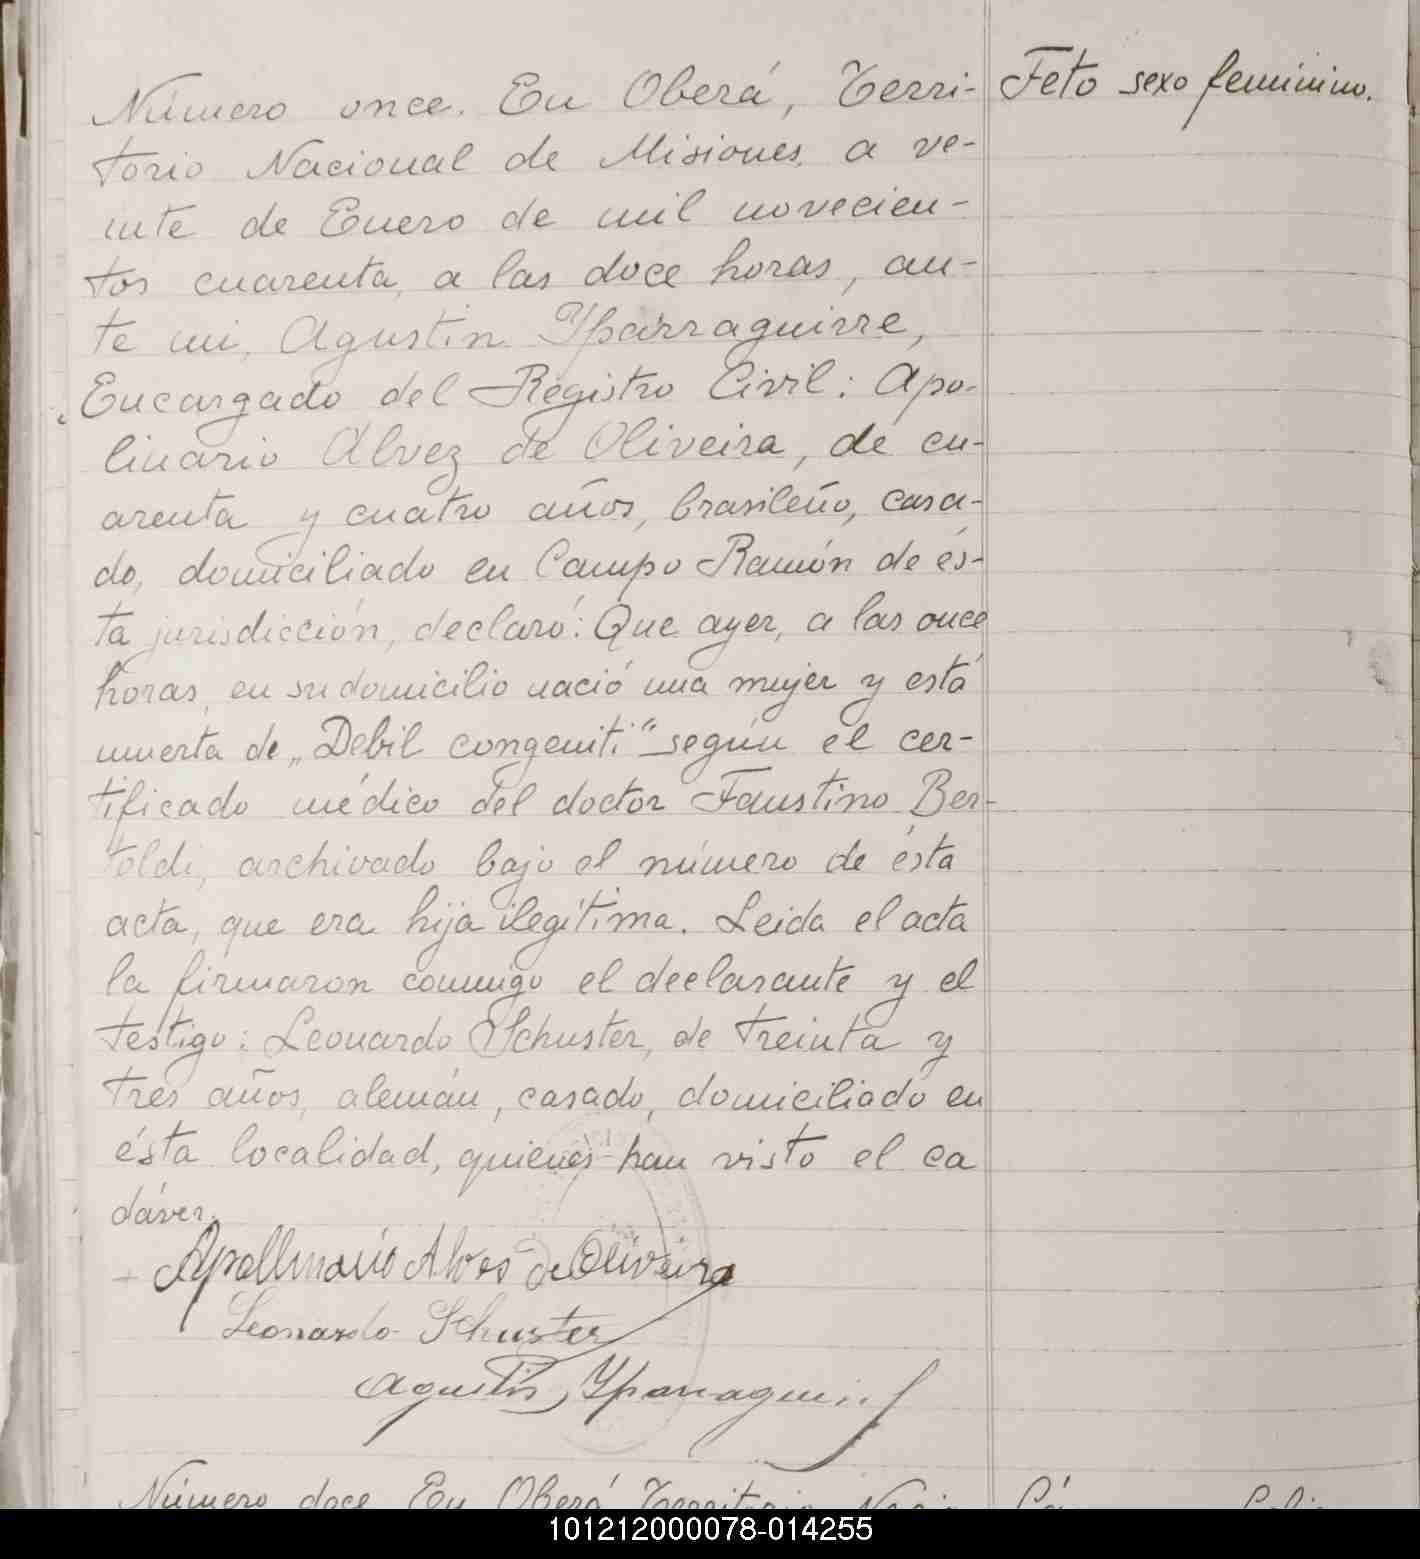 Número once. En Oberá, Terri-
Feto sexo feminino.
torio Nacional de Misiones, a ve-
inte de Enero de mil novecien-
tos cuarenta, a las doce horas, an-
te mi, Agustin Yparraguirre,
Encargado del Registro Civil: Apo-
linario Alvez de Oliveira, de cu-
arenta y cuatro años, brasileño, casa-
do, domiciliado en Campo Ramón de és-
ta jurisdicción, declaró: Que ayer, a las once
horas, en su domicilio nació una mujer y está
muerta de „Debil congeniti“ según el cer-
tificado médico del doctor Faustino Ber-
toldi, archivado bajo el número de ésta
acta, que era hija ilegítima. Leida el acta
la firmaron conmigo el declarante y el
testigo: Leonardo Schuster, de treinta y
tres años, alemán, casado, domiciliado en
ésta localidad, quienes han visto el ca
dáver.
Apollinario Alves de Oliveira
Leonardo Schuster
Agustin Yparraguirre
Número doce. En Oberá, Territorio
101212000078-014255